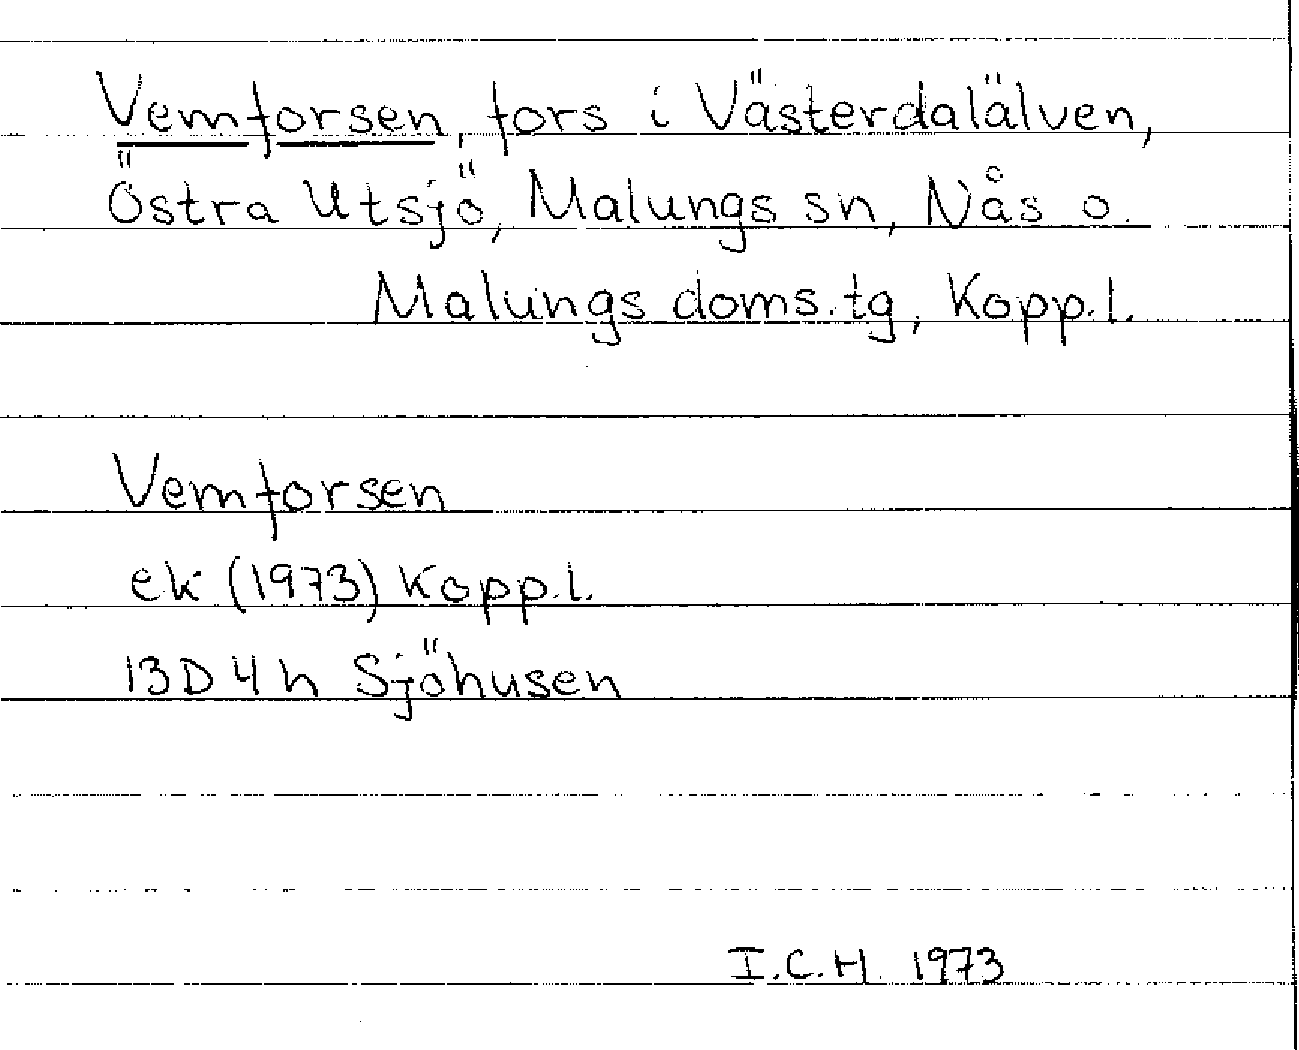 Vemforsen, fors i Västerdalälven,
Östra Utsjö, Malungs sn, Nås o.
Malungs doms.tg, Kopp.l.
Vemforsen
ek (1973) Kopp.l.
13D4h Sjöhusen
I.C.H. 1973